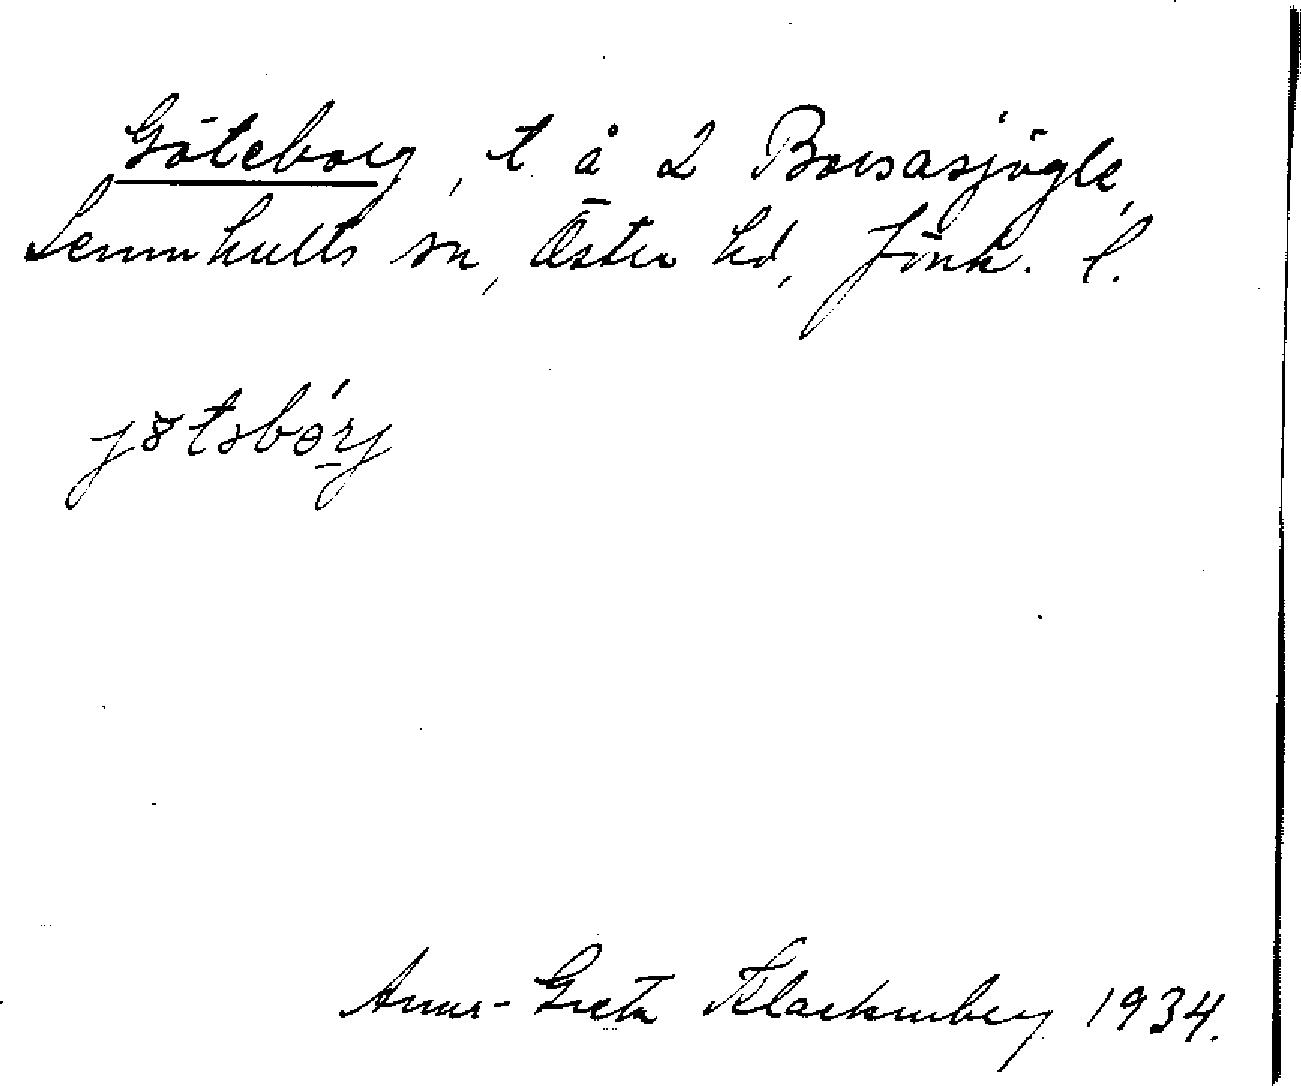 Göteborg, t. å 2 Borsasjögle,
Lemnhults sn, Öster hd, Jönk. l.
jøtsbórj
Anna-Greta Klackenberg 1934.